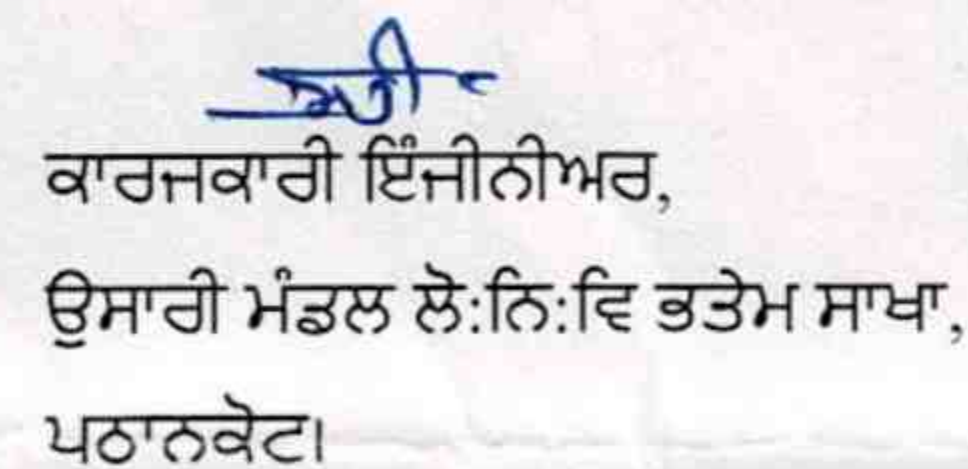 ਕਾਰਜਕਾਰੀ ਇੰਜੀਨੀਅਰ,
ਉਸਾਰੀ ਮੰਡਲ ਲੋ:ਨਿ:ਵਿ ਭਤੇਮ ਸਾਖਾ,
ਪਠਾਨਕੋਟ।